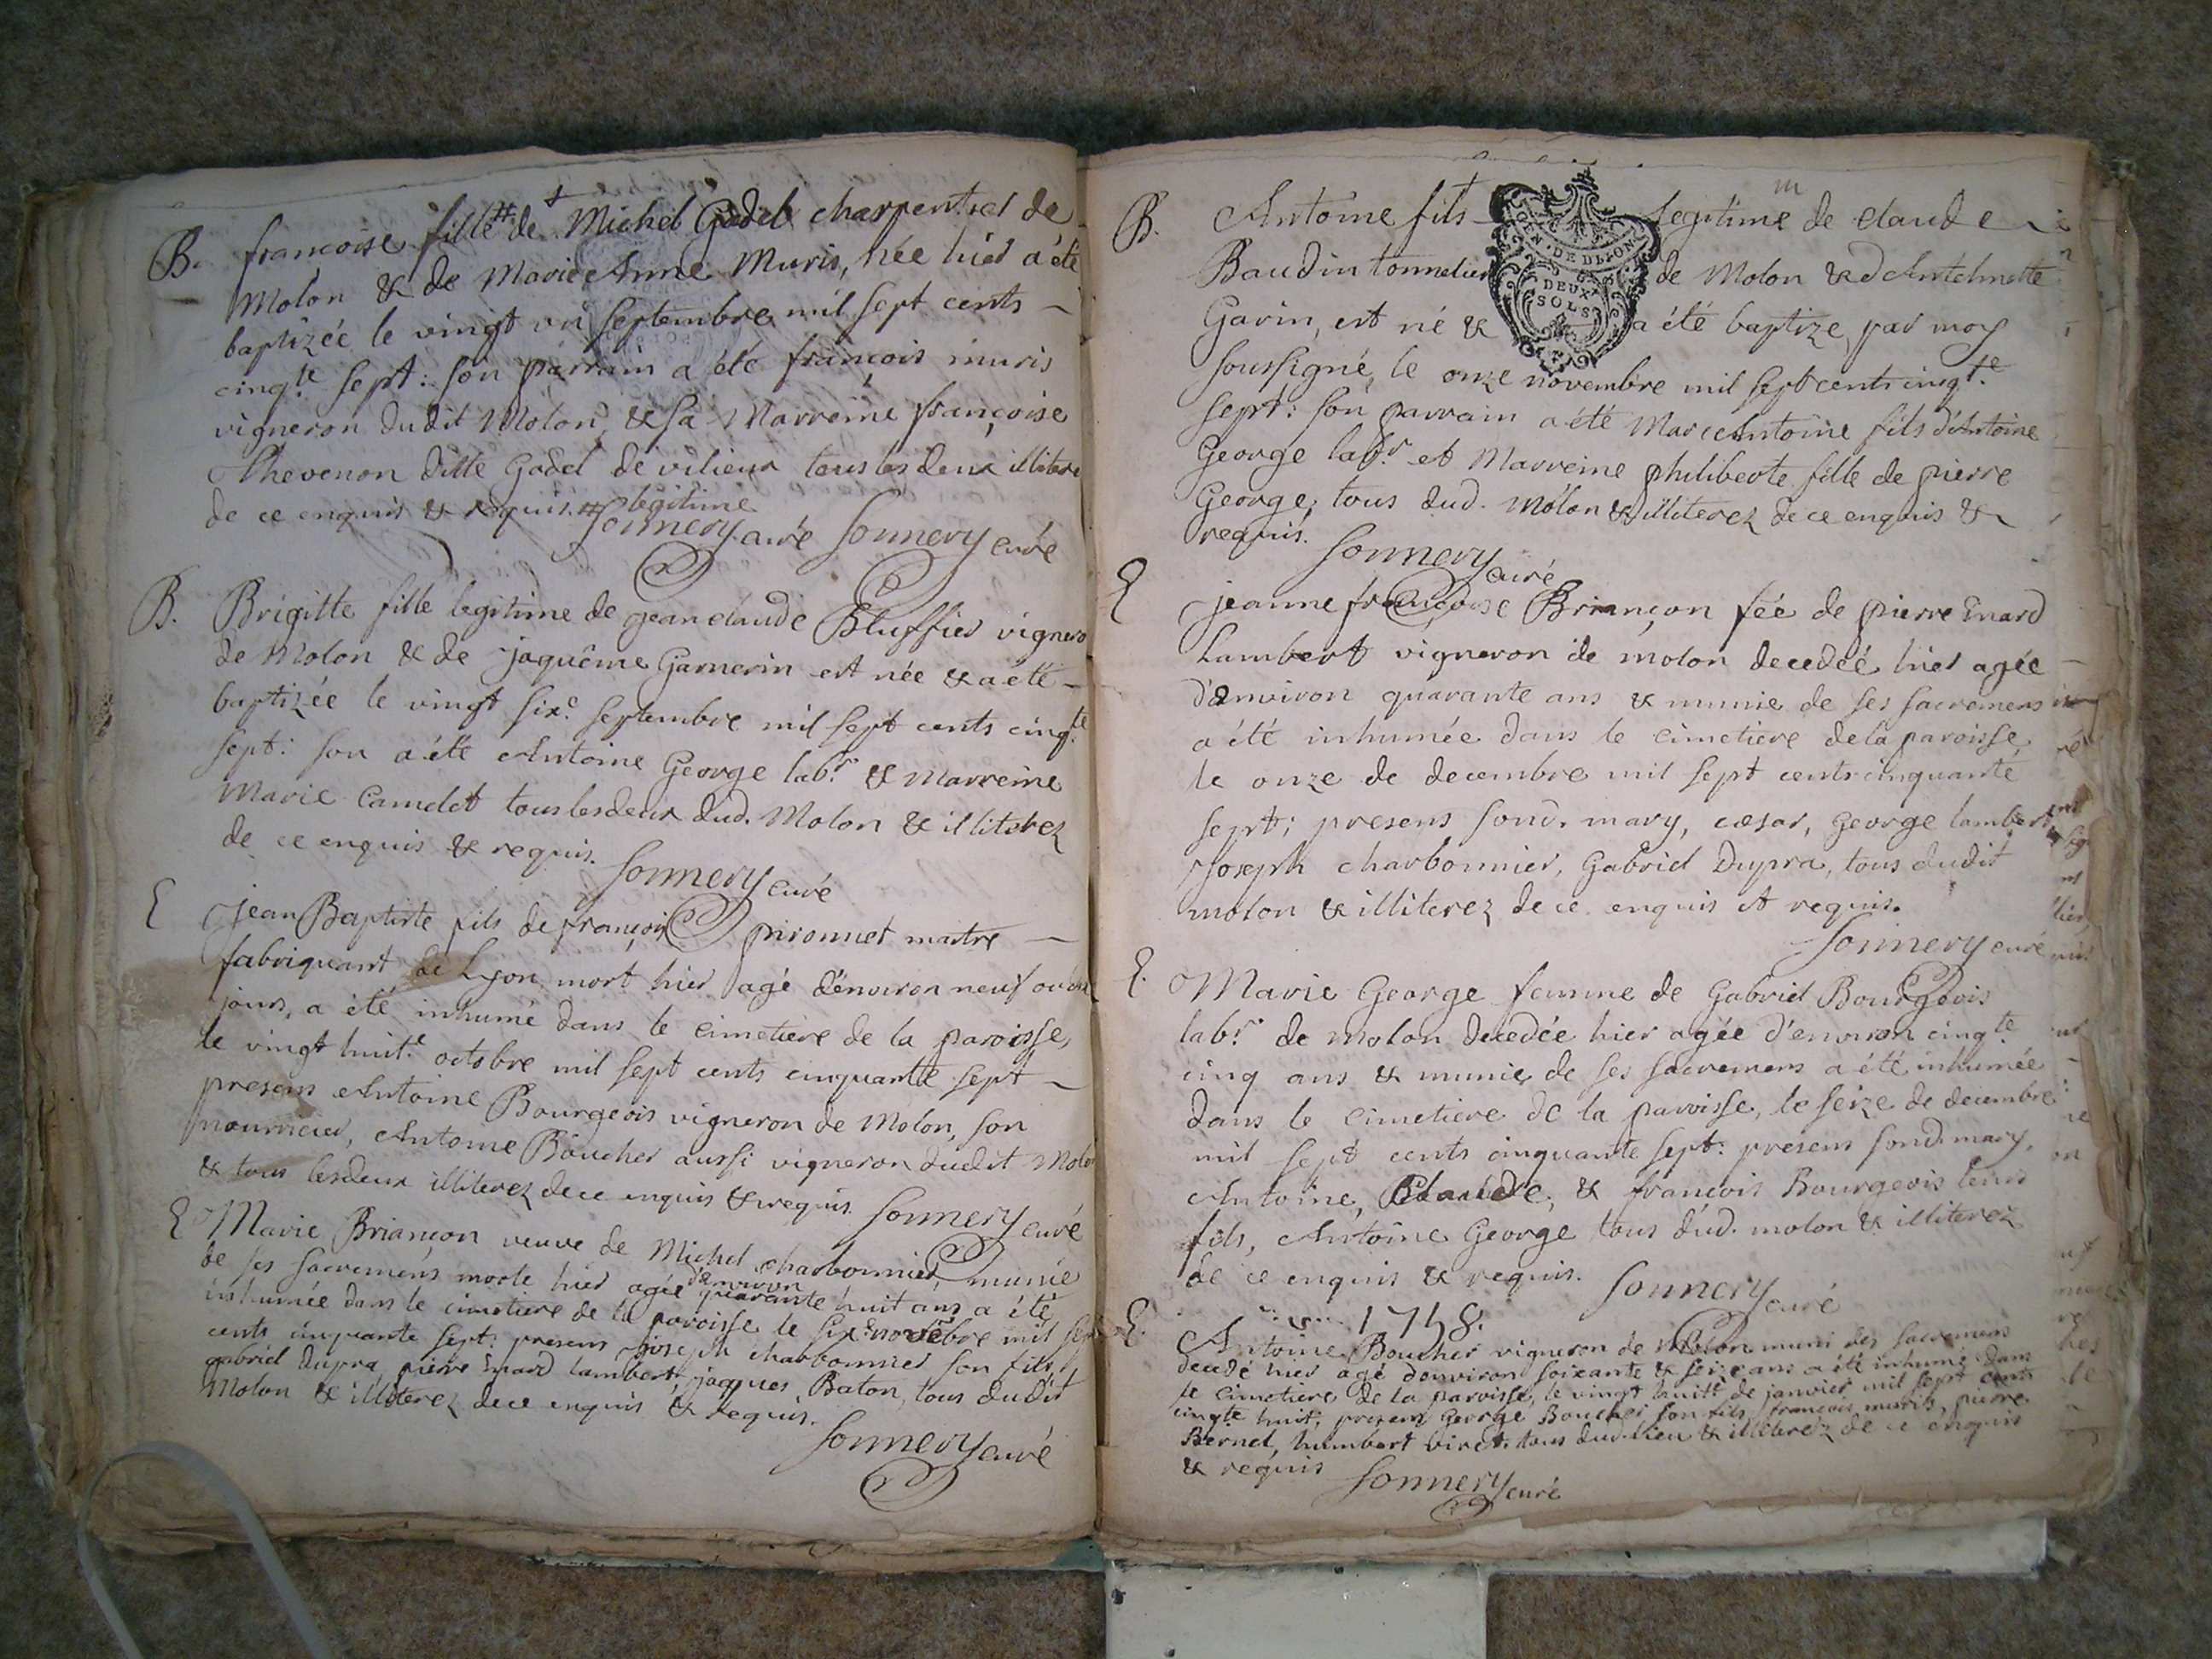 B. francoise fille # de Michel Godel charpentier de
Molon & de Marie Anne Muris, née hier a été
baptizée le vingt un septembre mil sept cents
cinq.te sept: son parrain a été françois muris
vigneron dudit Molon, & sa Marreine françoise
Thevenon ditte Godel de vilieux tous les deux illitere
de ce enquis & requis. # legitime
Sonnery curé Sonnery curé
B. Brigitte fille legitime de jean claude Bluffier vignero
de Molon & de jaquême Garnerin est née & a été
baptizée le vingt six.e septembre mil sept cents cinq.te
sept: son a été Antoine George lab.r & Marreine
Marie Camelet tous les deux dud. Molon & illiterez
de ce enquis & requis. Sonnery curé
E jean Baptiste fils de françois pironnet maitre
fabriquant de Lyon mort hier agé d'environ neuf ou
jours, a été inhumé dans le cimetiere de la paroisse,
le vingt huit.e octobre mil sept cents cinquante sept
presens Antoine Bourgeois vigneron de Molon, son
nourricier, Antoine Boucher aussi vigneron dudit Molo
& tous les deux illiterez de ce enquis & requis. Sonnery curé
E Marie Briançon veuve de Michel charbonnier munie
de ses sacremens morte hier agée d'environ quarante huit ans a été
inhumée dans le cimetiere de la paroisse le six.e novembre mil sep
cents cinquante sept: presens joseph charbonnier son fils,
gabriel Dupra, pierre Enard lambert, jaques Baton, tous dudit
Molon & illiterez de ce enquis & requis.
Sonnery curé
B. Antoine fils legitime de claude
GEN. DE DIJON
DEUX
SOLS
Baudin tonnelier de Molon & d'Antelmette
Garin, est né & a été baptize, par moy
soussigné, le onze novembre mil sept cents cinqt.e
sept: son parrain a été Marc Antoine fils d'Antoine
George lab.r et Marreine philiberte fille de pierre
George, tous dud. Molon & illiterez de ce enquis &
requis. Sonnery curé
E jeanne françoise Briançon fée de pierre Enard
Lambert vigneron de molon decedée hier agée
d'environ quarante ans & munie de ses sacremens
a été inhumée dans le cimetiere de la paroisse,
le onze de decembre mil sept cents cinquante
sept; presens sond. mary, cæsar, George lambert,
Joseph charbonnier, Gabriel Dupra, tous dudit
molon & illiterez de ce enquis et requis.
Sonnery curé
E. Marie George femme de Gabriel Bourgeois
lab.r de Molon decedée hier agée d'environ cinq.te
cinq ans & munie de ses sacremens a été inhumée
dans le cimetiere de la paroisse, le seize de decembre
mil sept cents cinquante sept: presens sond. mary,
Antoine, Claude, & françois Bourgeois leurs
fils, Antoine George tous dud. molon & illiterez
de ce enquis & requis. Sonnery curé
1758.
E. Antoine Boucher vigneron de Molon muni des sacremens
decedé hier agé d'environ soixante & seize ans a été inhumé dans
le cimetiere de la paroisse, le vingt huitt.e de janvier mil sept cents
cinqte huit, presens George Boucher son fils, françois muris, pierre
Bernel, humbert viret. tous dud. lieu & illiterez de ce enquis
& requis Sonnery curé